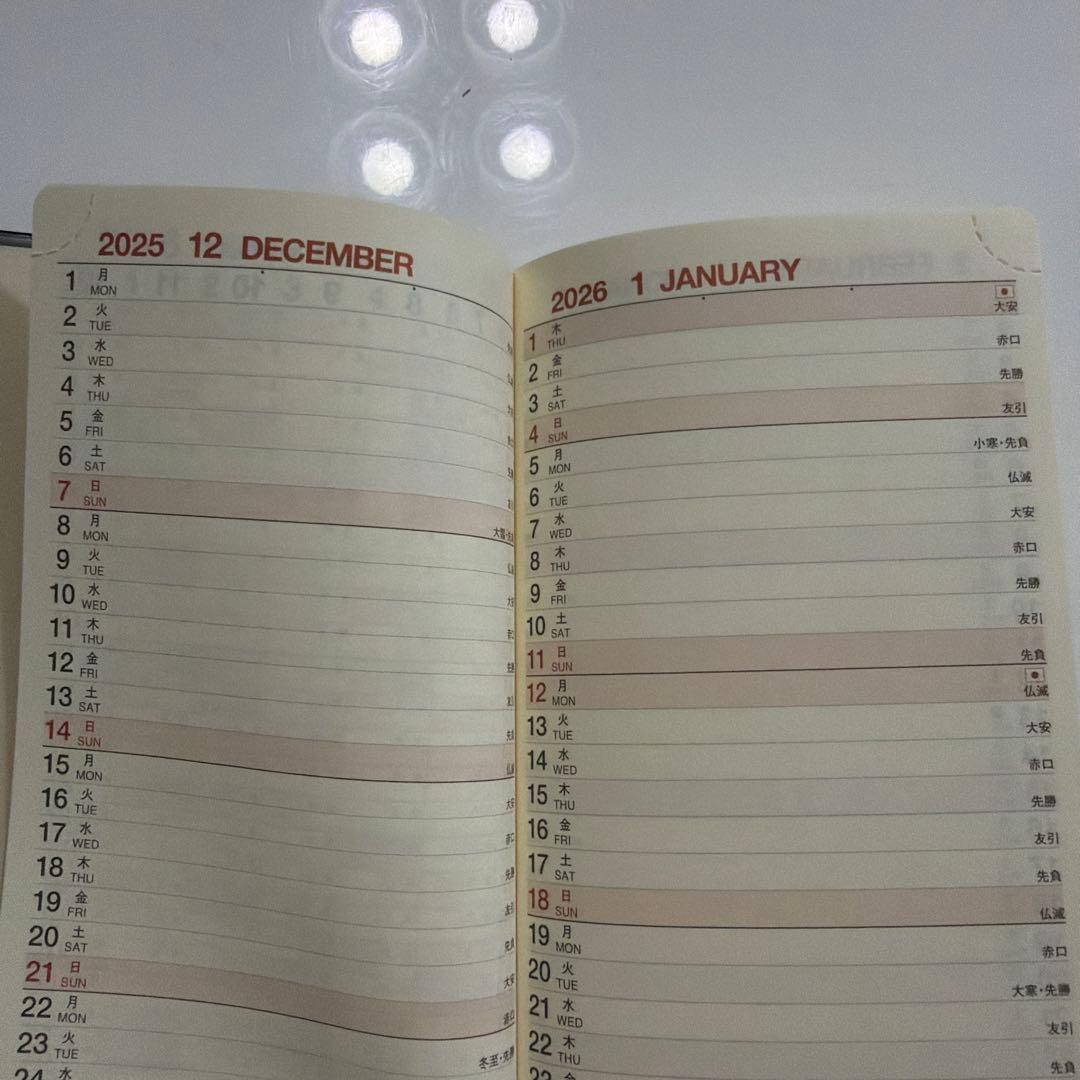 2025 12 DECEMBER
1 月 MON
2 火 TUE
3 水 WED
4 木 THU
5 金 FRI
6 土 SAT
7 日 SUN
8 月 MON 大雪
9 火 TUE
10 水 WED
11 木 THU
12 金 FRI
13 土 SAT
14 日 SUN
15 月 MON
16 火 TUE 大安
17 水 WED 赤口
18 木 THU 先勝
19 金 FRI 友引
20 土 SAT 先負
21 日 SUN 大安
22 月 MON 赤口
23 火 TUE 冬至・先勝
24 水
2026 1 JANUARY
1 木 THU 大安
2 金 FRI 赤口
3 土 SAT 先勝
4 日 SUN 友引
5 月 MON 小寒・先負
6 火 TUE 仏滅
7 水 WED 大安
8 木 THU 赤口
9 金 FRI 先勝
10 土 SAT 友引
11 日 SUN 先負
12 月 MON 仏滅
13 火 TUE 大安
14 水 WED 赤口
15 木 THU 先勝
16 金 FRI 友引
17 土 SAT 先負
18 日 SUN 仏滅
19 月 MON 赤口
20 火 TUE 大寒・先勝
21 水 WED 友引
22 木 THU 先負
23 金